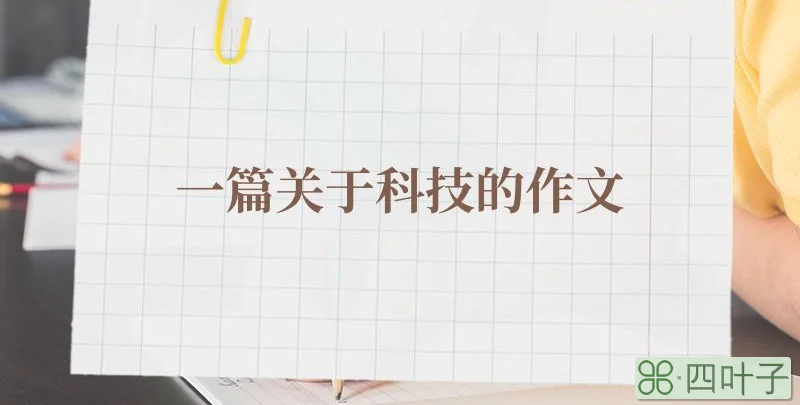 一篇关于科技的作文
四叶子